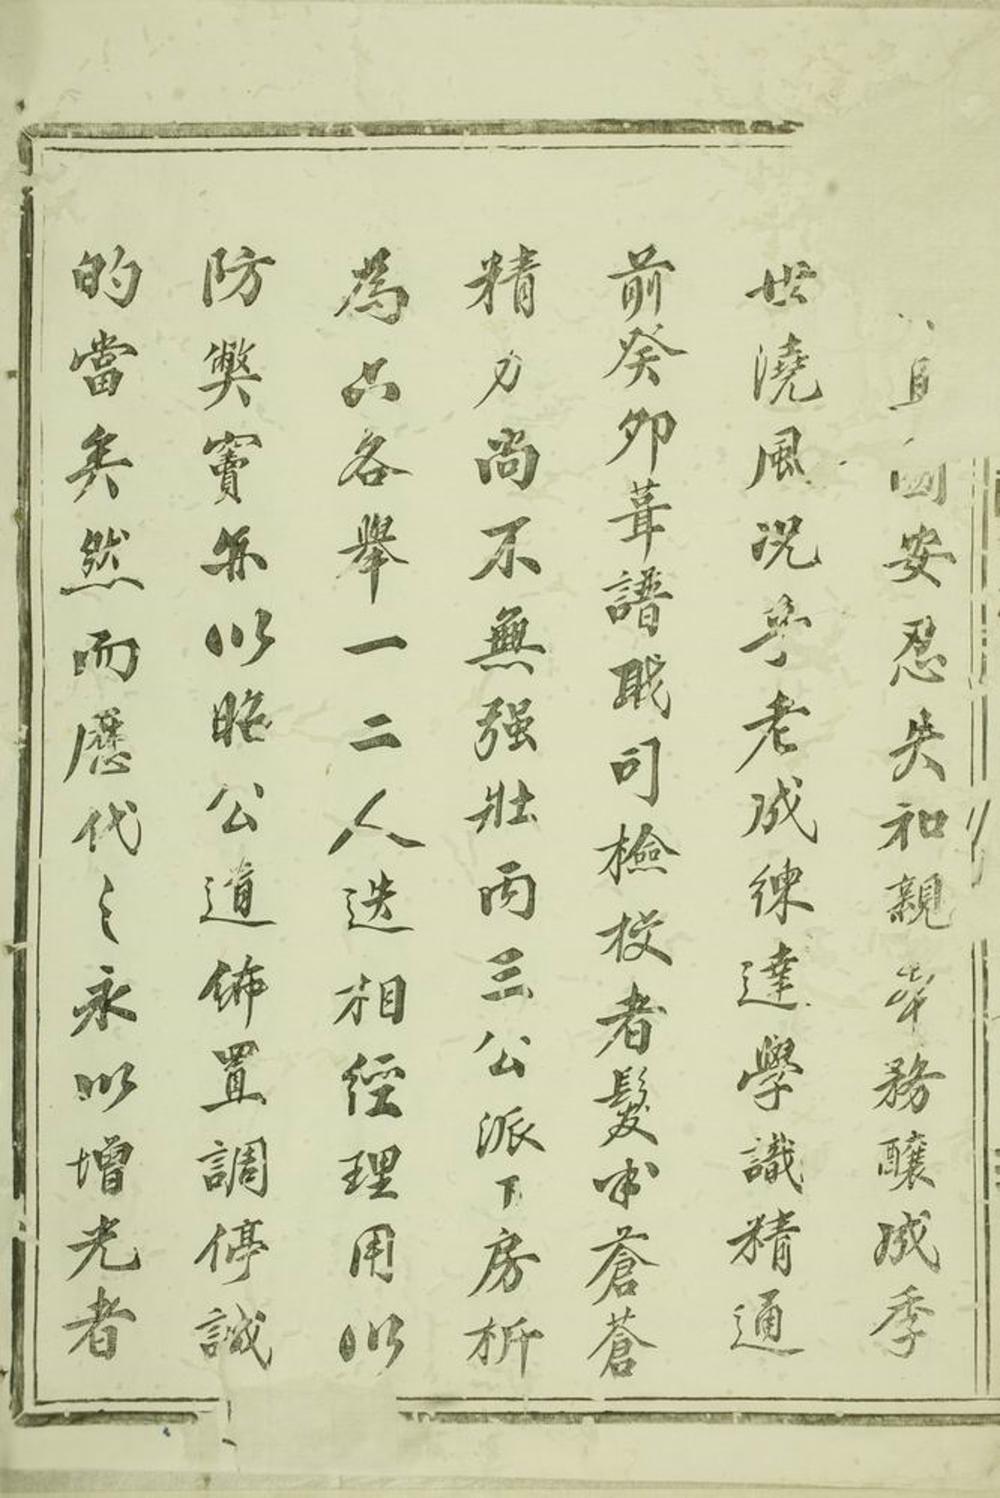 安忍失和親率務釀成季
世澆風況乎老成練達學識精通
前癸卯葺譜戢司檢校者髮半蒼蒼
精力尚不無强壯丙三公派下房析
為六各舉一二人迭相經理用以
防獘竇無以昭公道佈置調停誠
的當矣然而歷代之永以增光者